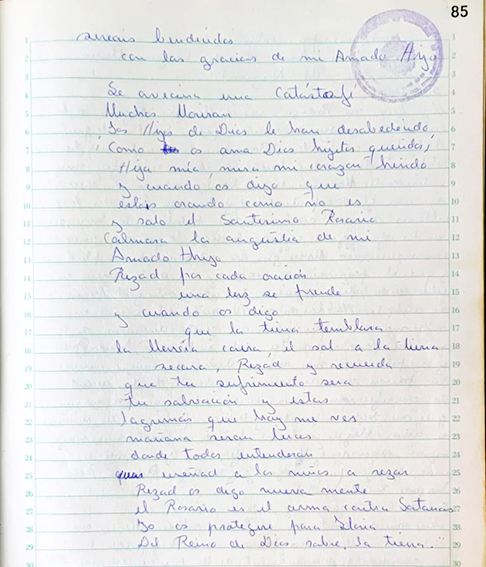 85
sereais bendecidos
con las gracias de mi Amado Hijo
Se avecina una Catástofe
Muchos Moriran
Los Hijos de Dios le han desobedecido
Como os ama Dios hijitos queridos,
Hija mía, mira mi corazon herido
y cuando os digo que
estais orando como no es
y solo el Santisimo Rosario
Calmara la angustia de mi
Amado Hijo
Rezad por cada oración
una luz se prende
y cuando os digo
que la tierra temblara
la lluvia caera, el sol a la tierra
secara, Rezad y recuerda
que tu sufrimiento sera
tu salvación y estas
lagrimas que hoy me ves
mañana seran luces
donde todos entenderan
enseñad a los niños a rezar
Rezad os digo nueva mente
el Rosario es el arma contra Satanas
Yo os protegere para
Del Reino de Dios sobre la tierra."